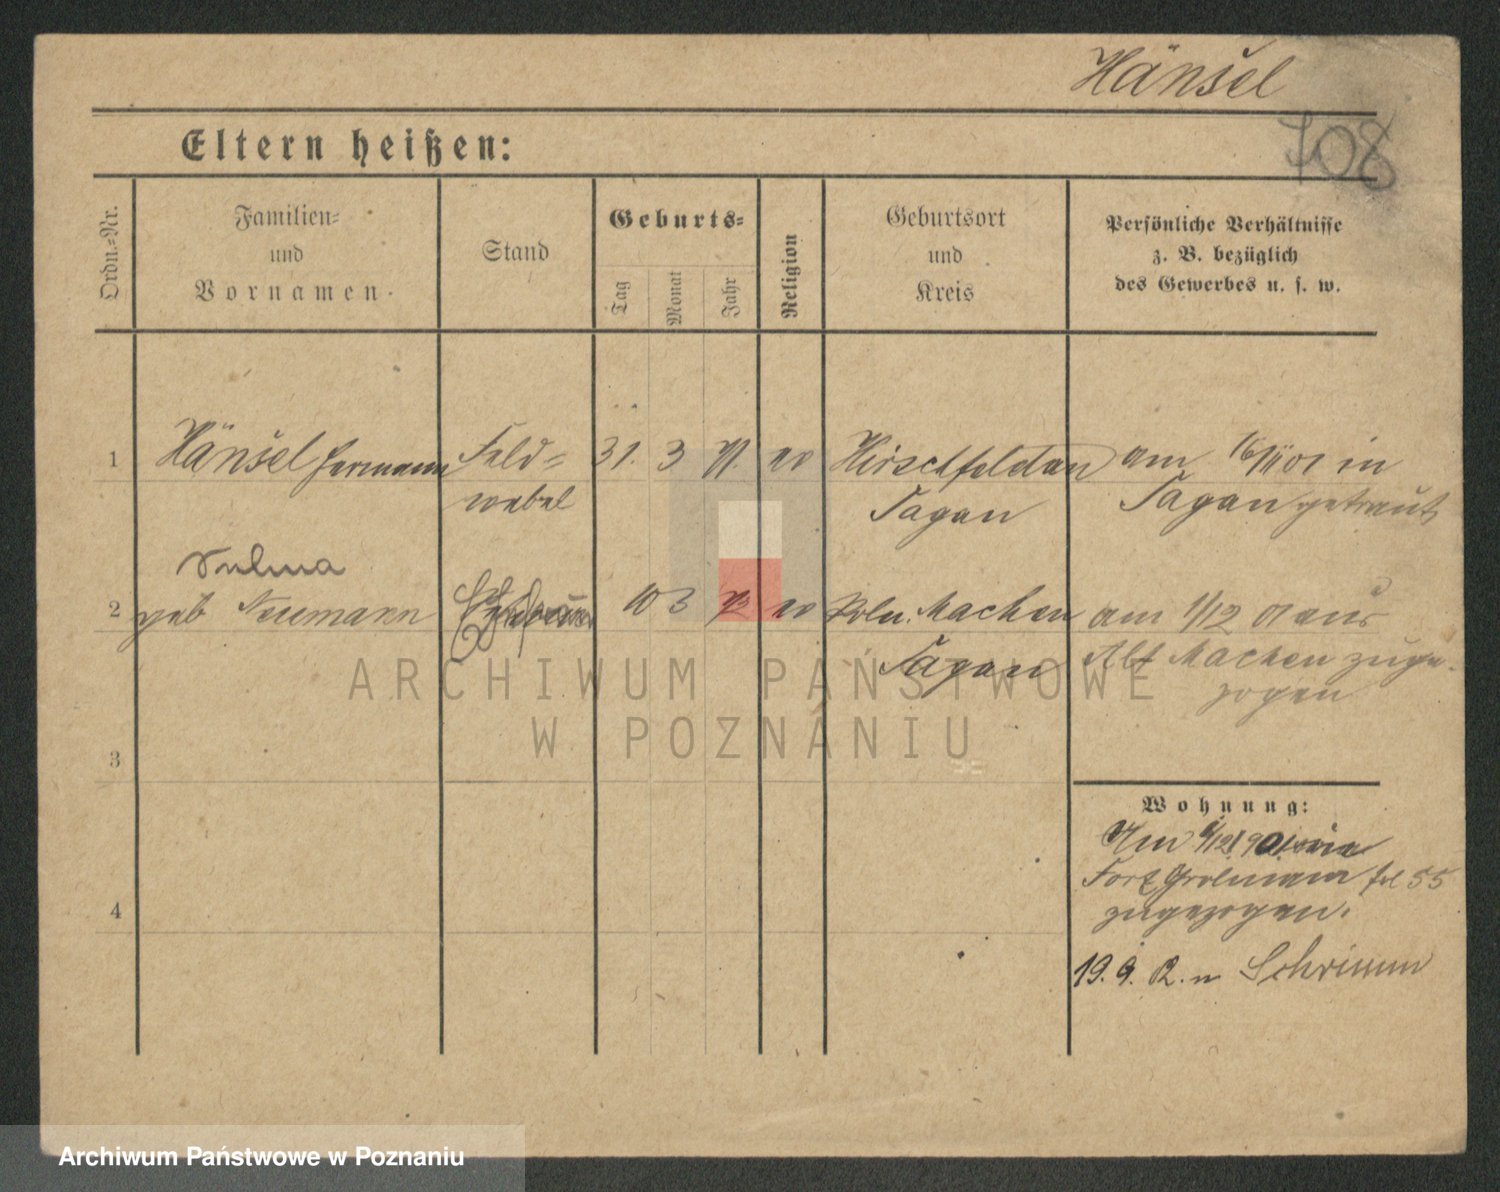 Hänsel
708
Eltern heißen:
Ordn.=Nr.
Familien=
und
Vornamen.
Stand
Geburts=
Tag
Monat
Jahr
Religion
Geburtsort
und
Kreis
Persönliche Verhältnisse
z. B. bezüglich
des Gewerbes u. s. w.
1
Hänsel Hermann
Feld=
webel
31. 3 71. ev
Hirschfeldau
Sagan
am 16/11 01 in
Sagan getraut
2
Selma
geb Neumann
10 3 73 ev
Poln. Machen
Sagan
am 1/12 01 aus
Alt Machen zuge-
zogen
3
4
Wohnung:
Am 1/12 1901
Fort Grolmann fol 55
zugezogen.
19. 9. 02. n Schrimm
ARCHIWUM PAŃSTWOWE
W POZNANIU
Archiwum Państwowe w Poznaniu